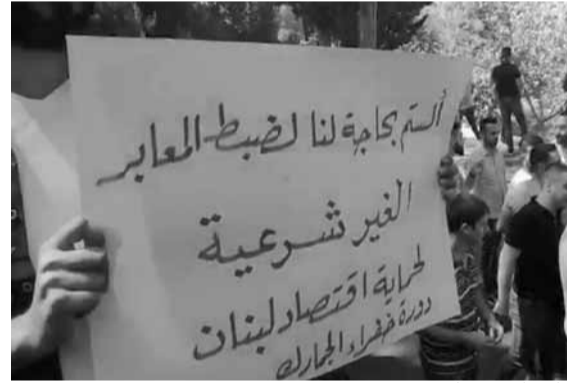 ألستم بحاجة لنا لضبط المعابر
الغير شرعية
لحماية اقتصاد لبنان
دورة خفراء الجمارك